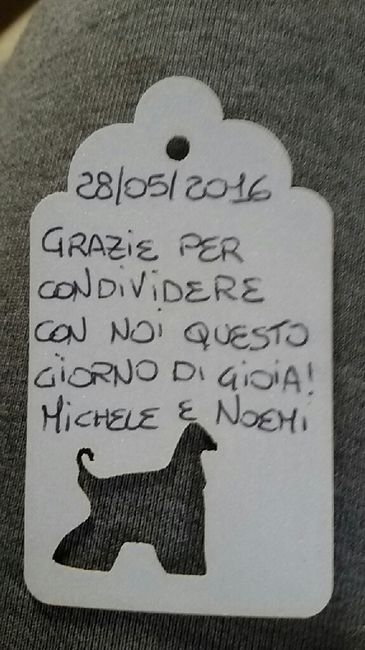 28/05/2016
GRAZIE PER
CONDIVIDERE
CON NOI QUESTO
GIORNO DI GIOIA!
MICHELE E NOEMI